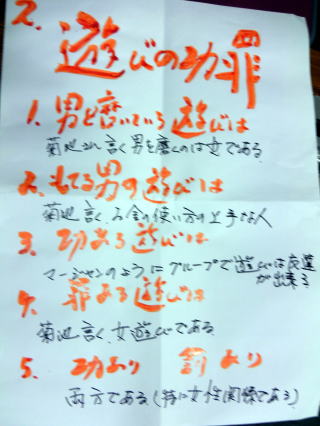 2.
遊びの功罪
1. 男を磨いている遊びは
菊池さん言く男を磨くのは女である
2. もてる男の遊びは
菊池言く、お金の使い方の上手な人
3. 功ある遊びは
マージャンのようにグループで遊びは友達
が出来る
4. 罪ある遊びは
菊池言く、女遊びである
5. 功あり 罰あり
両方である(特に女性関係である)